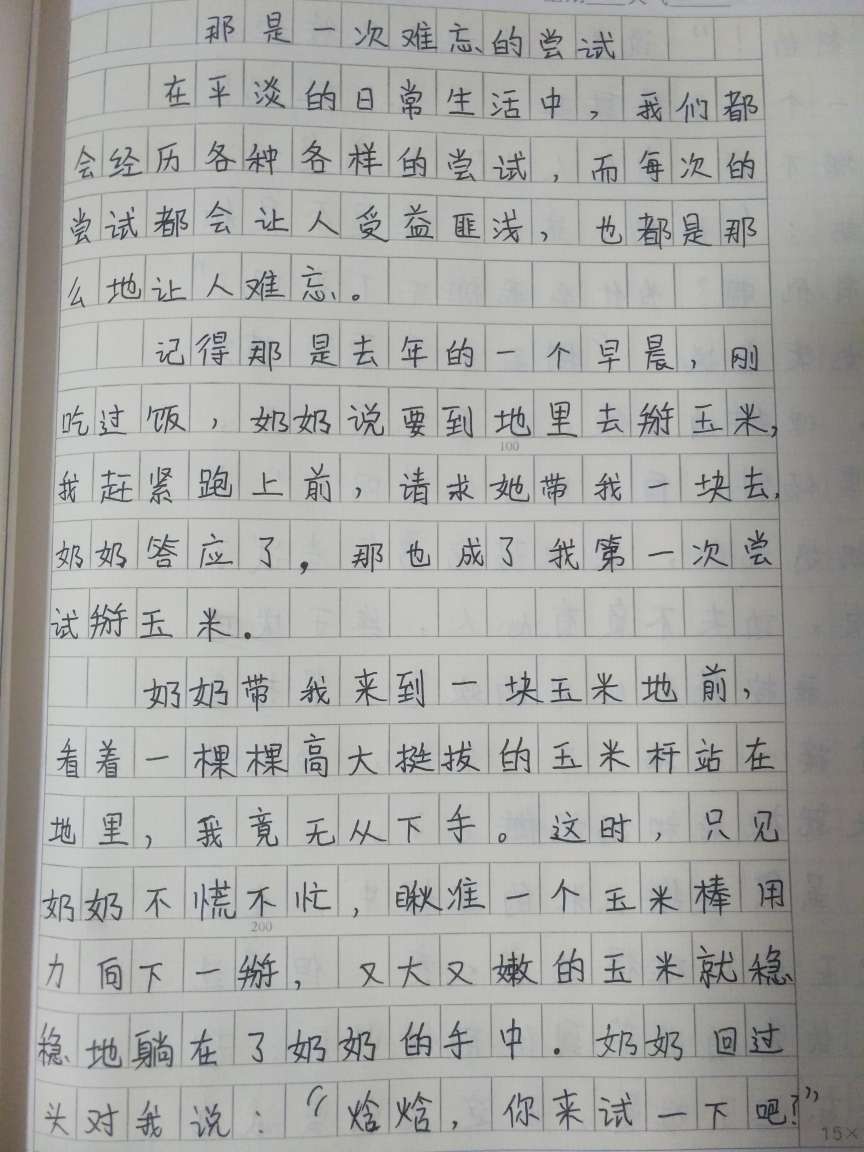 那是一次难忘的尝试
在平淡的日常生活中，我们都
会经历各种各样的尝试，而每次的
尝试都会让人受益匪浅，也都是那
么地让人难忘。
记得那是去年的一个早晨，刚
吃过饭，奶奶说要到地里去掰玉米，
100
我赶紧跑上前，请求她带我一块去，
奶奶答应了，那也成了我第一次尝
试掰玉米.
奶奶带我来到一块玉米地前，
看着一棵棵高大挺拔的玉米杆站在
地里，我竟无从下手。这时，只见
奶奶不慌不忙，瞅准一个玉米棒用
200
力向下一掰，又大又嫩的玉米就稳
稳地躺在了奶奶的手中.奶奶回过
头对我说：“焓焓，你来试一下吧？”
15×